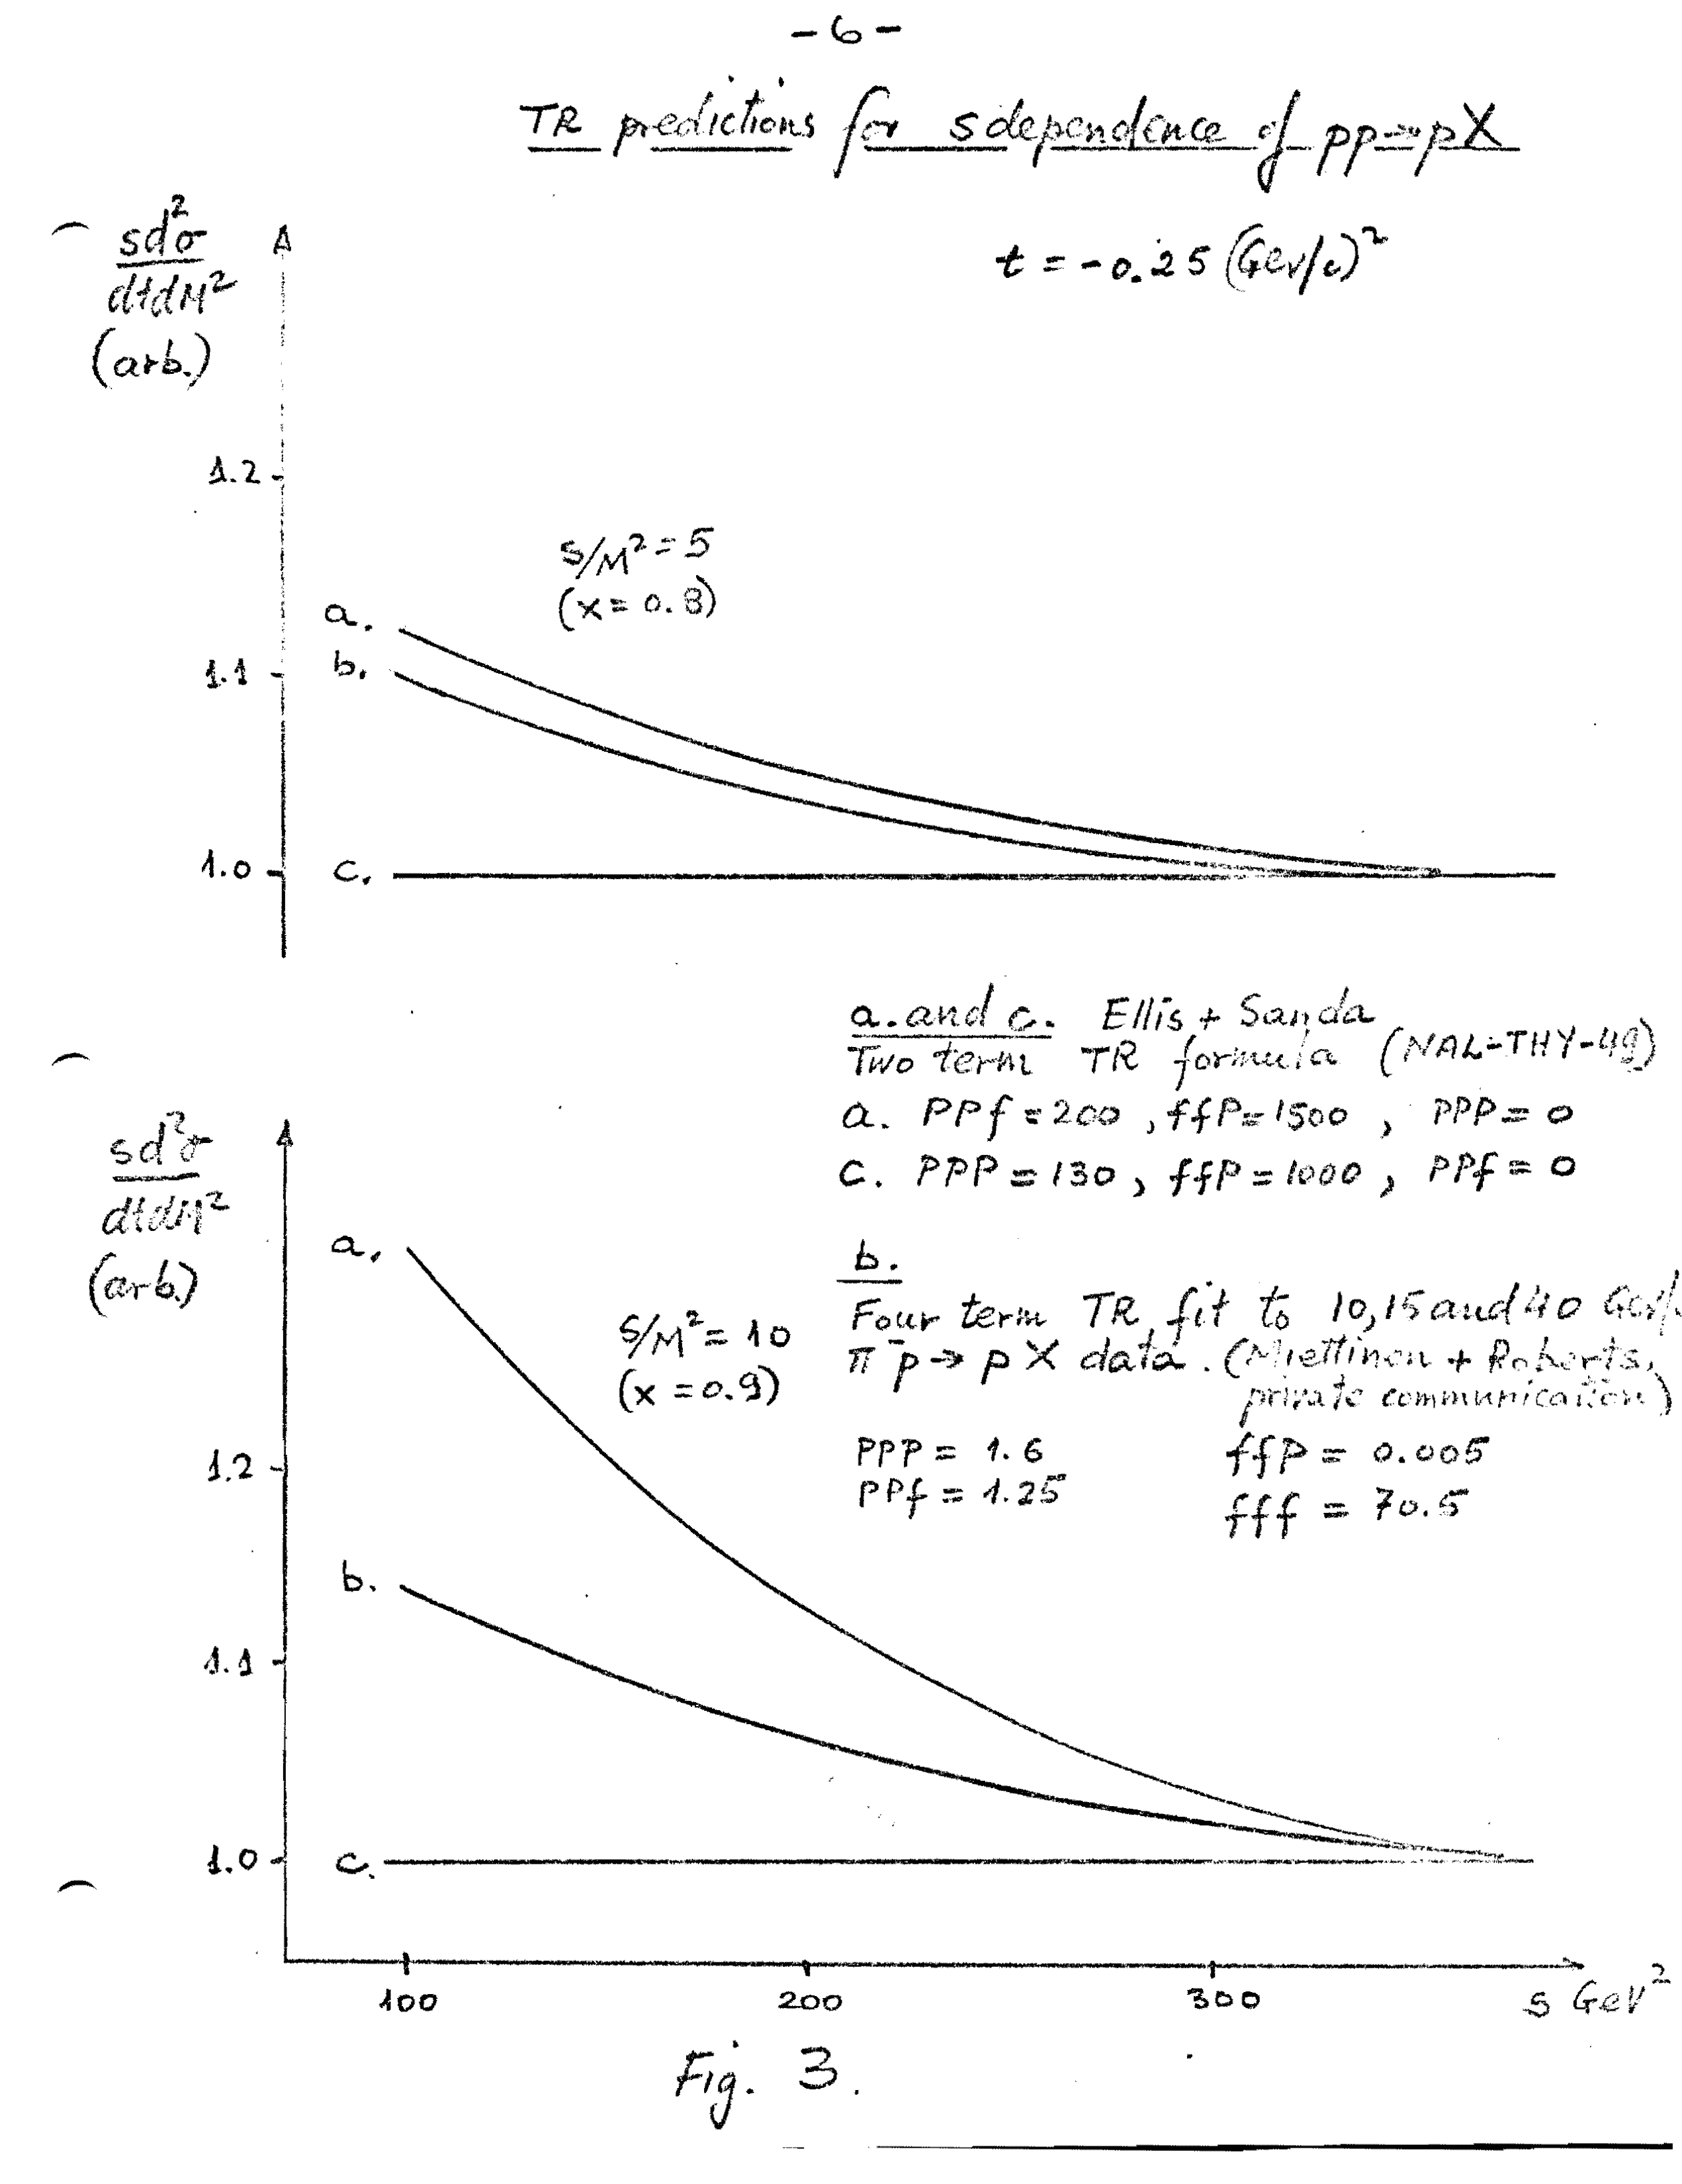 - 6 -
TR predictions for s dependence of pp→pX
t = -0.25 (GeV/c)²
sd²σ
dtdM²
(arb.)
1.2
S/M² = 5
(x = 0.8)
a.
b.
1.1
1.0
c.
a. and c. Ellis + Sanda
Two term TR formula (NAL-THY-49)
a. PPf = 200, ffP = 1500, PPP = 0
c. PPP = 130, ffP = 1000, PPf = 0
sd²σ
dtdM²
(arb.)
a.
b.
Four term TR fit to 10, 15 and 40 GeV/
π⁻p → p X data. (Miettinen + Roberts,
private communication)
S/M² = 10
(x = 0.9)
PPP = 1.6 ffP = 0.005
PPf = 1.25 fff = 70.5
1.2
b.
1.1
1.0
c.
100 200 300 s GeV²
Fig. 3.